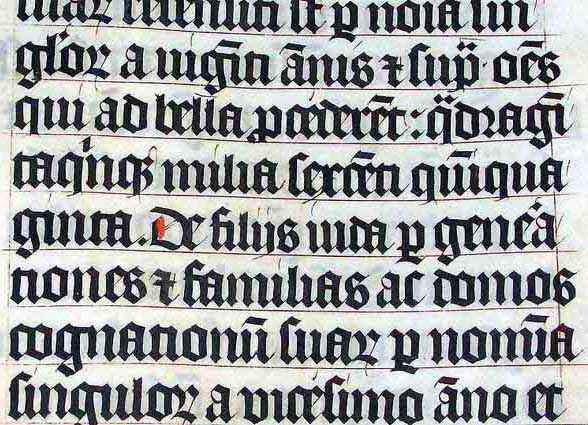 suaꝝ recensiti st̄ ꝑ noīa sin
gl'oꝝ a uigīti ānis ⁊ sup̈· oēs
qui ad bella ꝓcederēt : q̈dragī
taqⁱnqꝫ milia sexcēti quīqua
ginta. De filijs iuda ꝑ gene͛a
tiones ⁊ familias ac domos
cognationū suaꝝ ꝑ nomīa
singuloꝝ a vicesimo āno et